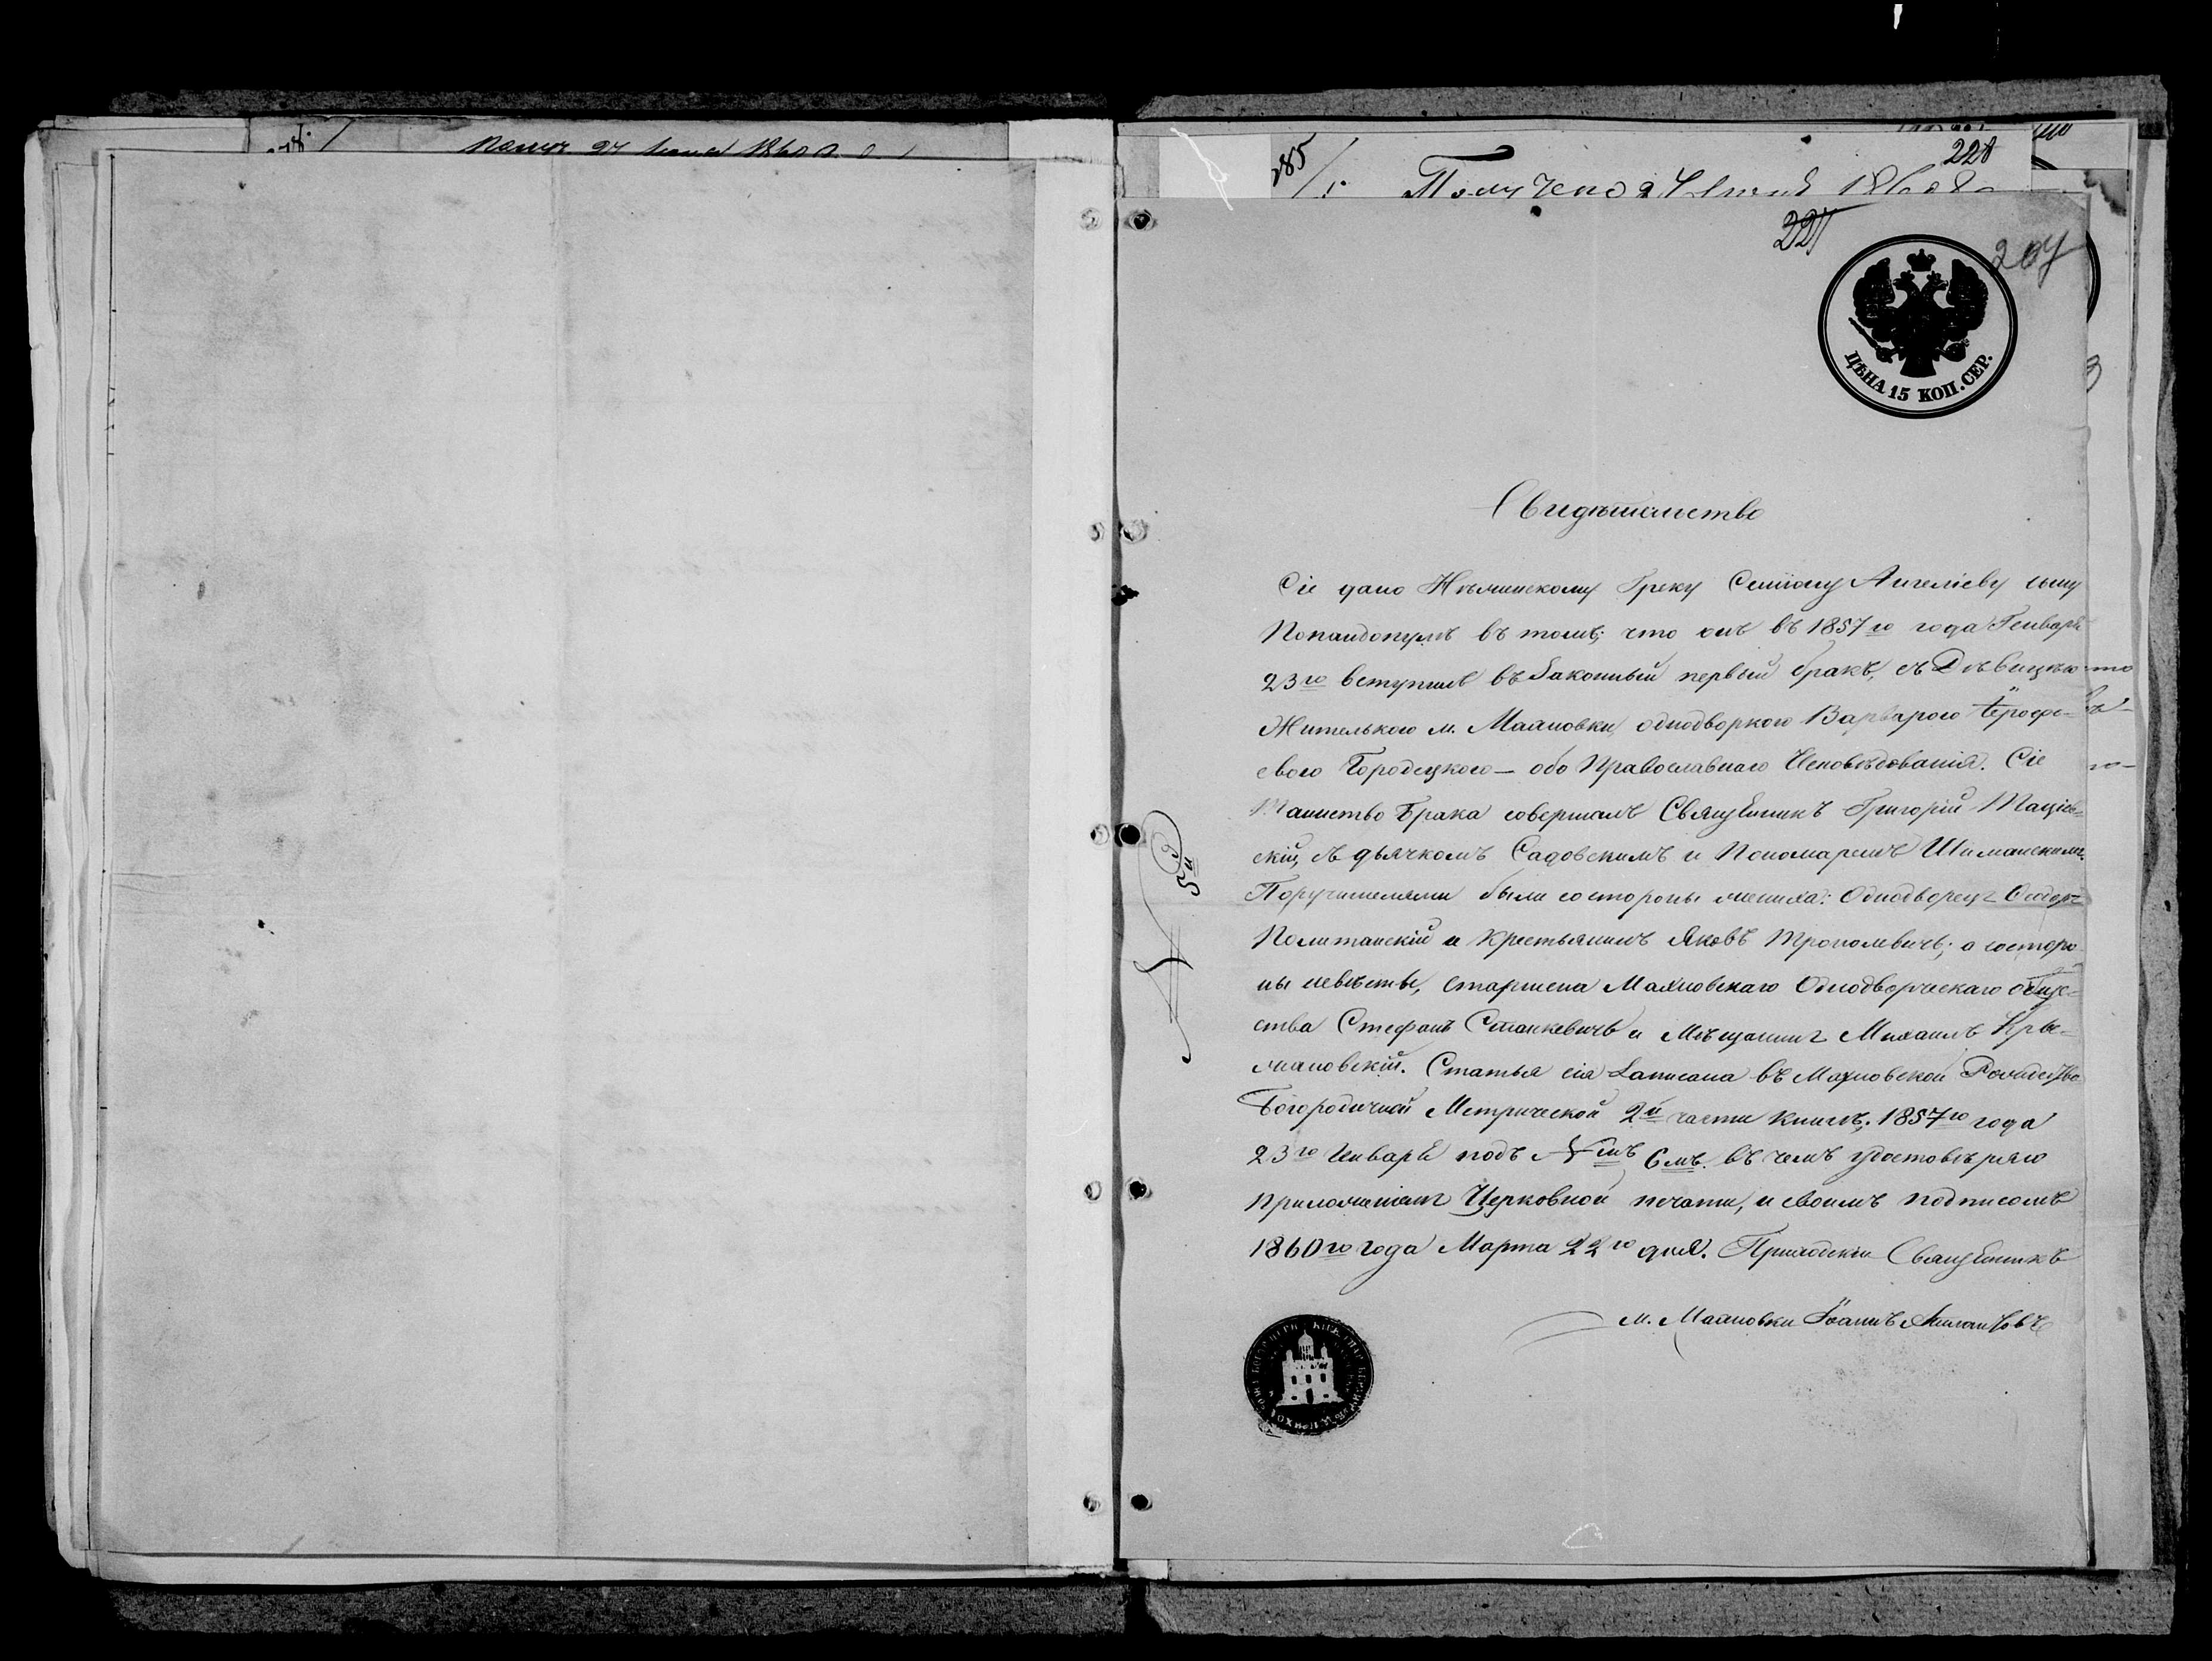 285/1.
228
227
207
ЦѢНА 15 КОП. СЕР.
Свидѣтельство
Сіе дано Нѣжинскому Греку Семіону Ангеліеву сыну
Попандопулѣ въ томъ; что онъ въ 1857го года Генваря
23го вступилъ въ Законный первый бракъ, съ Дѣвицею
Жителькою м. Махновки, однодворкою Варварою Ерофе-
евою Городецкою — обо Православнаго Исповѣдованія. Сіе
Таинство Брака совершалъ Священникъ Григорій Маціев-
скій, съ дьячкомъ Садовскимъ и Пономаремъ Шиманскимъ.
Поручителями были со стороны жениха: Однодворецъ
Политанскій и Крестьянинъ Яковъ; а состоро-
ны невѣсты, старшена Махновскаго Однодворческаго обще-
ства Стефанъ Станкевичъ и Мѣщанинъ Михаилъ Кры-
жановскій. Статья сія Записана въ Махновской Рождество
Богородичной Метрической 2й части книгѣ, 1857го года
23го Генваря подъ №мъ 6мъ. въ чемъ удостовѣряю
приложеніемъ Церковной печати, и своимъ подписомъ
1860го года Марта 22го дня. Приходскій Священникъ
м. Махновки Іоаннъ